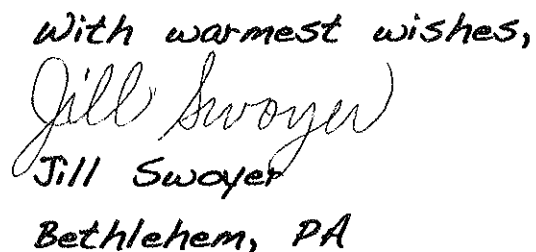 With warmest wishes,
Jill Swoyer
Jill Swoyer
Bethlehem, PA